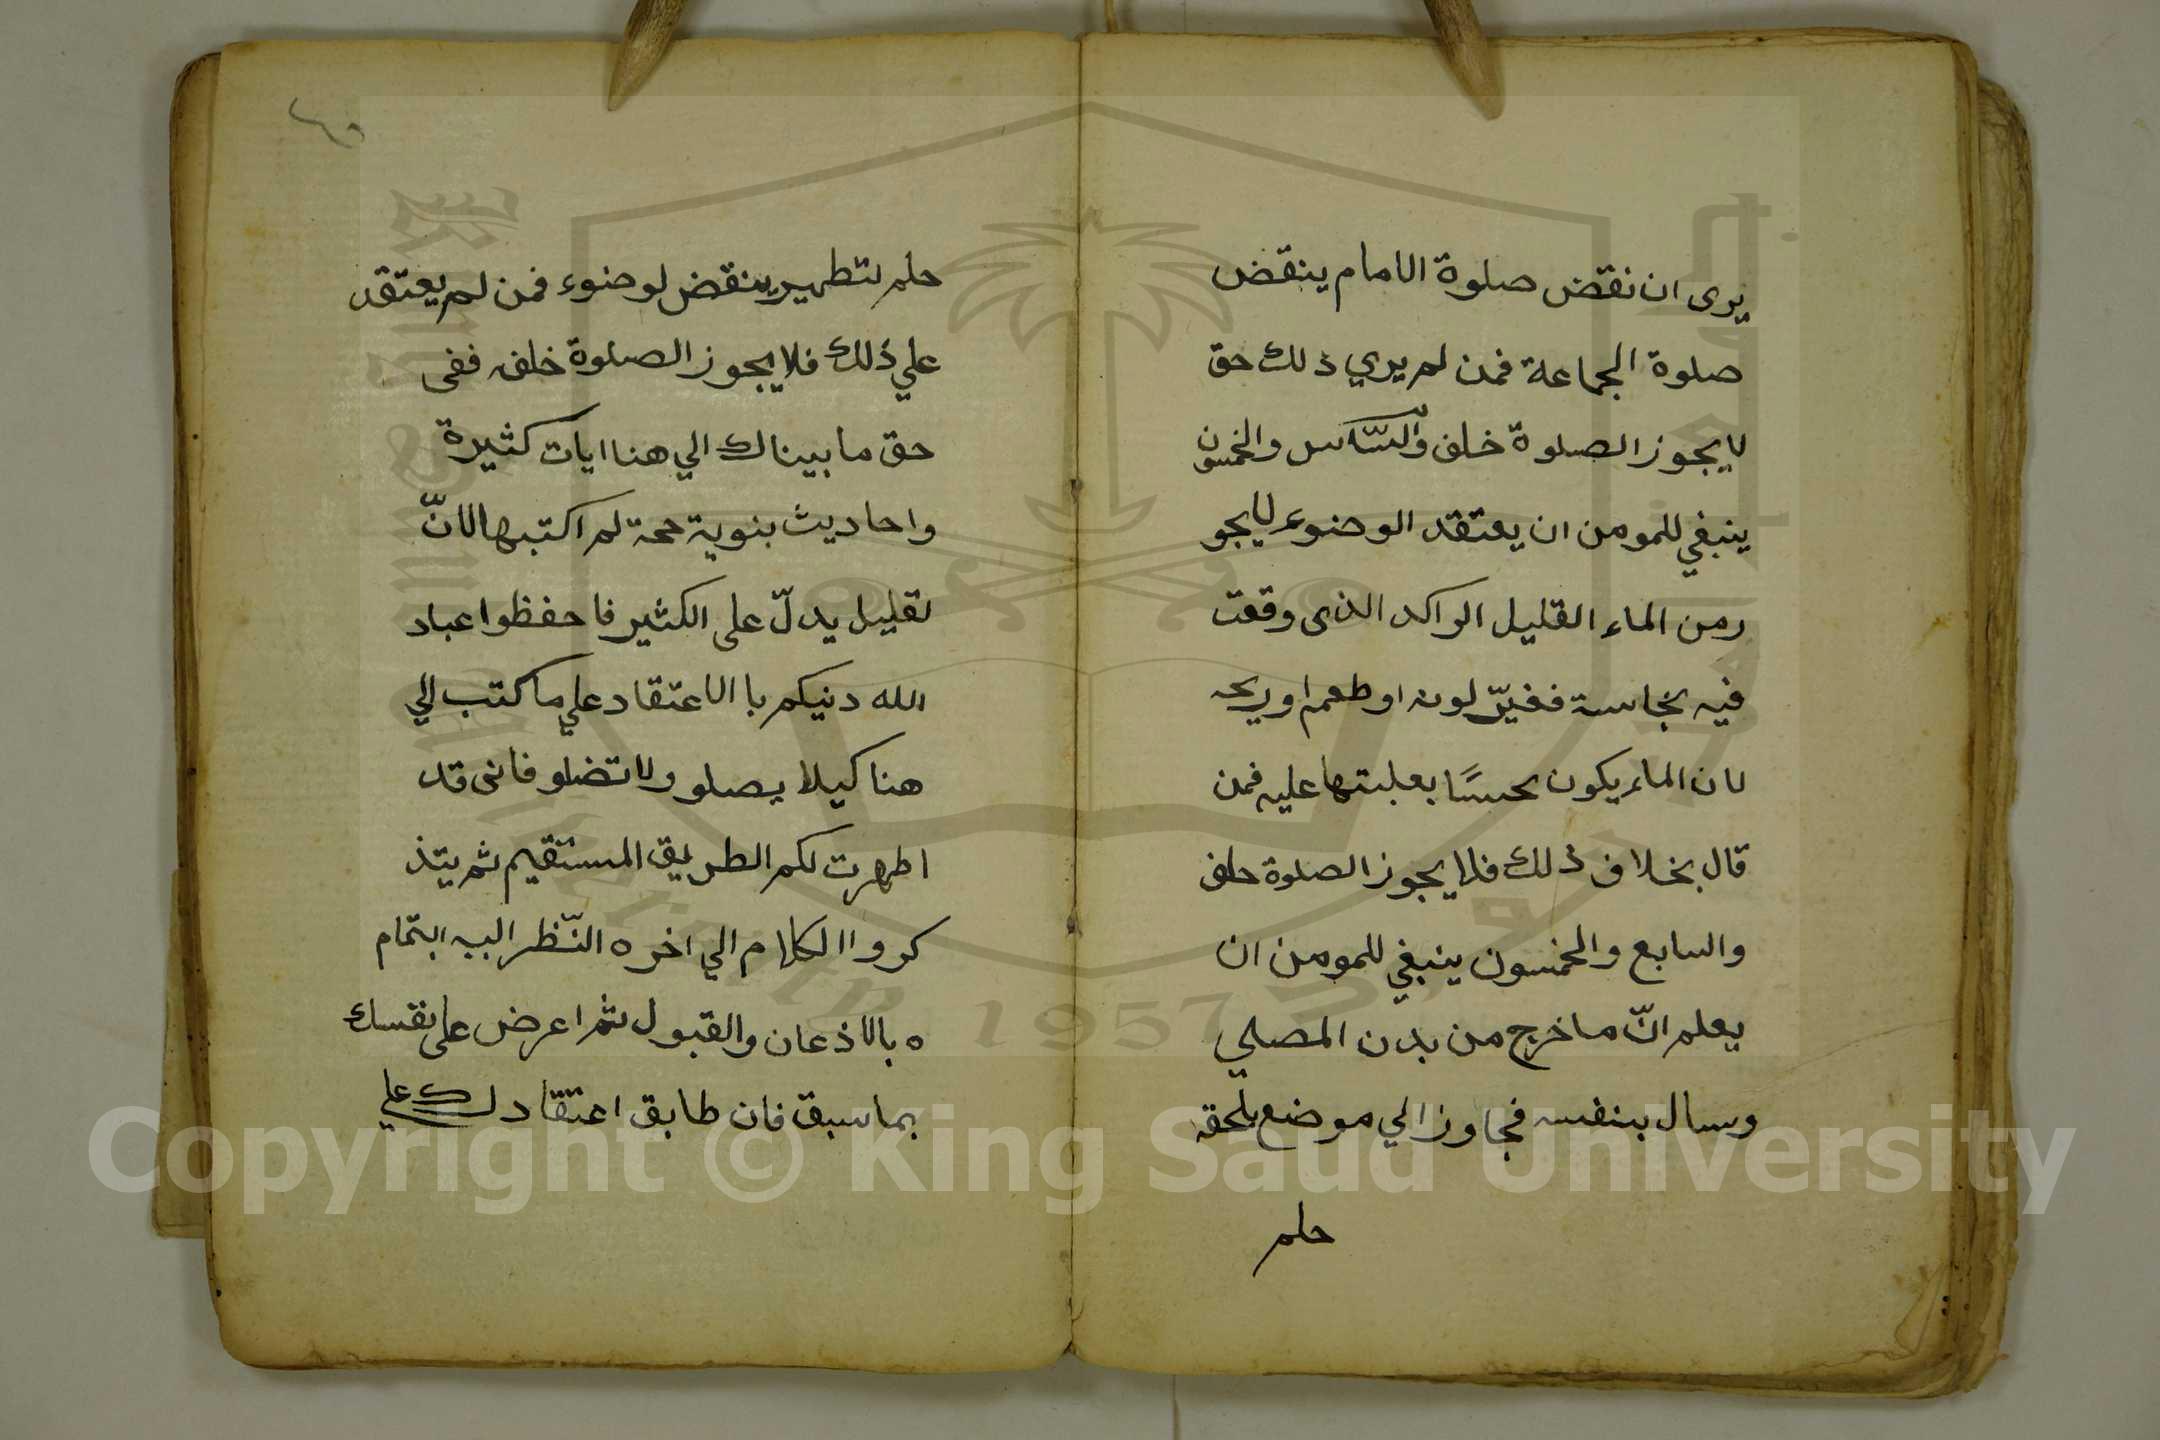 يرى ان نقض صلوة الامام ينقض
صلوة الجماعة فمن لم يري ذلك حق
لا يجوز الصلوة خلف والسادس والخمسون
ينبغي للمومن ان يعتقد الوضوء لايجو
زمن الماء القليل الراكد الذى وقعت
فيه نجاسة فغيّر لونه او طعمه او ريحه
لان الماء يكون نجسًا بغلبتها عليه فمن
قال بخلاف ذلك فلا يجوز الصلوة خلف
والسابع والخمسون ينبغي للمومن ان
يعلم انّ ما خرج من بدن المصلي
وسال بنفسه فجاوز الي موضع يلحقه
حلم
حلم لتطهير ينقض لوضوء فمن لم يعتقد
علي ذلك فلا يجوز الصلوة خلفه ففى
حق ما بيناك الي هنا ايات كثيرة
واحاديث بنوية لم اكتبها لانّ
لقليل يدلّ على الكثير فاحفظوا عباد
الله دنيكم با الاعتقاد علي ما كتب الي
هنا كيلا يصلو ولا تضلو فانى قد
اظهرت لكم الطريق المستقيم ثم يتذ
كروا الكلام الي اخره النّظر اليه ابتمام
ه بالاذعان والقبول ثم اعرض على نفسك
بما سبق فان طابق اعتقادك علي
Copyright © King Saud University
King Saud University
1957